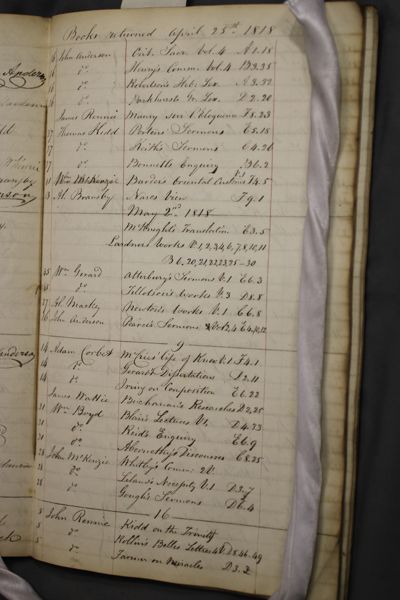 Books returned April 25th 1818
John Anderson Crit. Sacr. Vol. 4 A 1.18
do Henry's Comm. Vol. 4 D 3.35
do Robertson's Heb. Lex. A 3.32
do Parkhurst's Gr. Lex. D 2.20
James Rennie Maury sur l'Eloquence F 8.23
27 Thomas Kidd Porteus Sermons E 5.18
27 Keith's Sermons C 4.26
27 do Bonnetts Enquiry B 6.2
11 Wm McKenzie Burders Oriental Customs V.1 F 4.5
Al. Bransby Nares View F 9.1
May 2nd 1818
McKnights Translation E 3.5
Lardners Works V. 1, 2, 3, 4, 6, 7, 8, 10, 11
B 6. 20, 21, 22, 23, 25-30
25 Wm Gerard Atterbury's Sermons V.1 E 6.3
25 do Tillotson's Works V. 3 D 1.8
27 Al. Newton's Works V.1 C 6.8
John Anderson Pearce's Sermons Vol. 2, 4 E 4.10, 12
9
14 Adam Corbet McCries life of Knox V.1 F 4.1
14 do Gerard's Dissertations D 2.11
14 do Irving on Composition E 6.22
James Wattie Buchanan's Researches D 2.25
21 Wm Boyd Blair's Lectures V.1, D 4.23
21 do Reid's Enquiry E 6.9
21 do Abernethy's Discourses C 8.25
28 John McKenzie Whitby's Comm: 2 V.
28 do Leland's Necessity V.1 D 3.7
28 do Gough's Sermons D 6.4
16
5 John Rennie Kidd on the Trinity
5 do Rollin's Belles Lettres 4 V. D 8.46.49
5 do Farmer on Miracles D 3.2